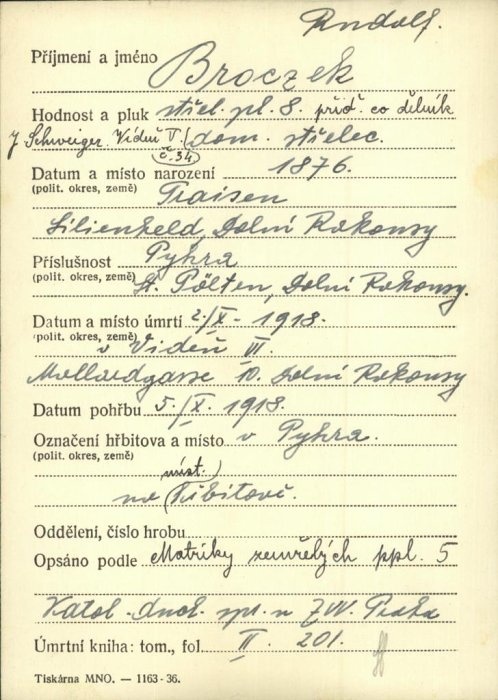 Rudolf.
Příjmení a jméno Broczek
Hodnost a pluk střel. pl. 8. přiď. co dělník
Schweiger. Vídeň V. (dom. střelec.
č. 34
Datum a místo narození 1876.
(polit. okres, země) Traisen
Lilienfeld, Dolní Rakousy
Příslušnost Pyhra
(polit. okres, země) St. Pölten, Dolní Rakousy.
Datum a místo úmrtí 2./X. 1918.
(polit. okres, země) v Vídeň VI.
Mollardgasse 10. Dolní Rakousy
Datum pohřbu 5./X. 1918.
Označení hřbitova a místo v Pyhra.
(polit. okres, země)
míst.
na hřbitově.
Oddělení, číslo hrobu
Opsáno podle Matriky zemřelých ppl. 5
Katol. duch. spr. n ZVV. Praha
Úmrtní kniha: tom., fol. II. 201.
Tiskárna MNO. — 1163-36.